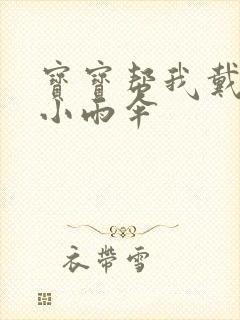 寶寶幫我戴
小雨伞
衣帶雪